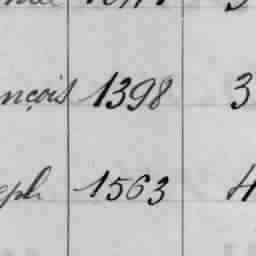 nçois 1398 3
eph 1563 4